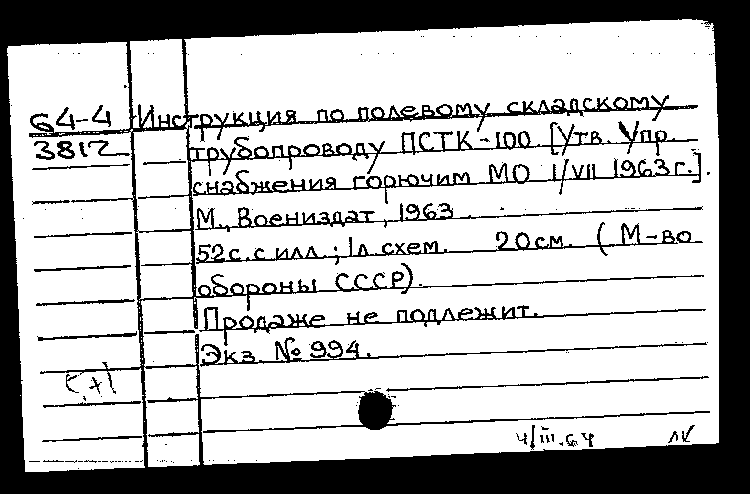 64-4 Инструкция по полевому складскому
3812 трубопроводу ПСТК-100 [Утв. Упр.
снабжения горючим МО 1/VII 1963 г.].
М., Воениздат, 1963.
52 с. с илл.; 1 л. схем. 20 см. (М-во
обороны СССР).
Продаже не подлежит.
Экз. № 994.
4/III.64